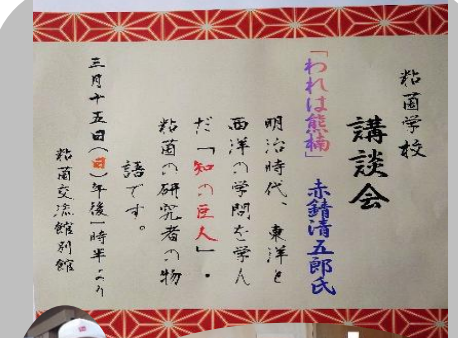 粘菌学校
講談会
「われは熊楠」 赤錆清五郎氏
明治時代、東洋と
西洋の学問を学ん
だ「知の巨人」・
粘菌の研究者の物
語です。
三月十五日(日)午後一時半より
粘菌交流館別館